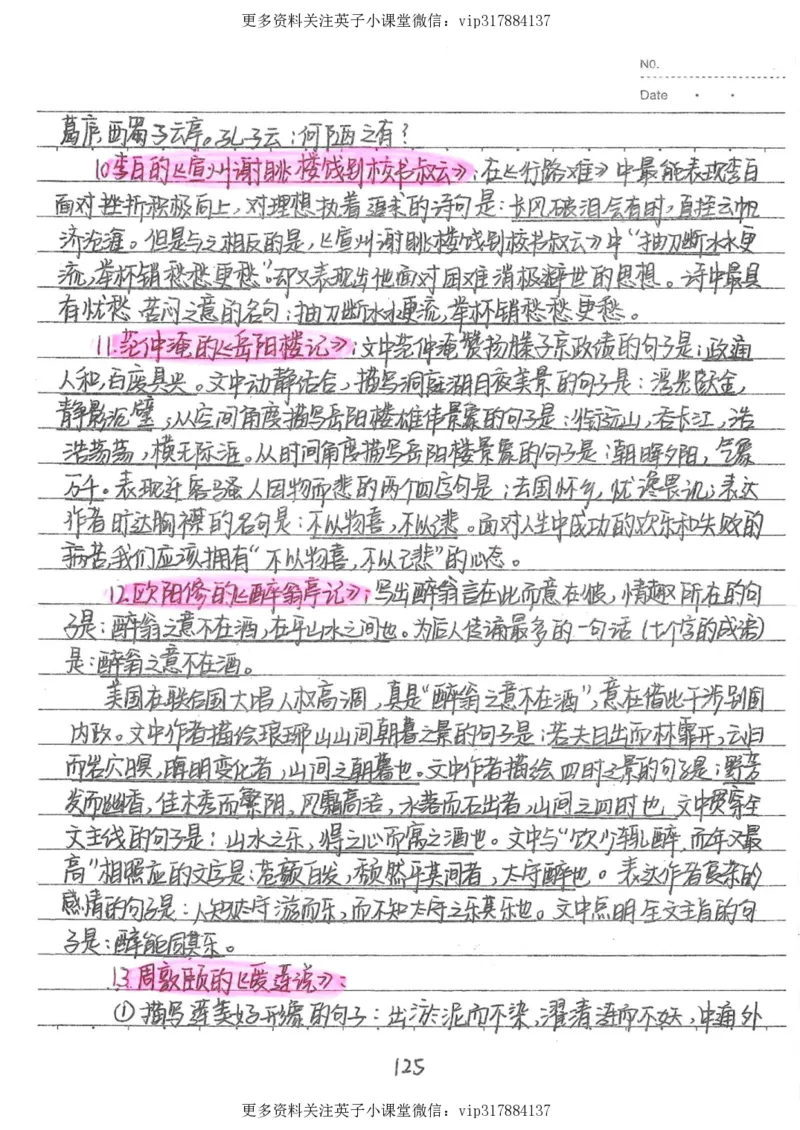 更多资料关注英子小课堂微信：vip317884137
NO.
Date
葛庐，西蜀子云亭。孔子云：何陋之有？
10.李白的《宣州谢眺楼饯别校书叔云》：在《行路难》中最能表现李白
面对挫折积极向上，对理想执着追求的诗句是：长风破浪会有时，直挂云帆
济沧海。但是与之相反的是，《宣州谢眺楼饯别校书叔云》中“抽刀断水水更
流，举杯销愁愁更愁”。却又表现出他面对困难消极避世的思想。诗中最具
有忧愁苦闷之意的名句：抽刀断水水更流，举杯销愁愁更愁。
11.范仲淹的《岳阳楼记》：文中范仲淹赞扬滕子京政绩的句子是：政通
人和，百废具兴。文中动静结合，描写洞庭湖月夜美景的句子是：浮光跃金，
静影沉璧；从空间角度描写岳阳楼雄伟景象的句子是：衔远山，吞长江，浩
浩荡荡，横无际涯。从时间角度描写岳阳楼景象的句子是：朝晖夕阴，气象
万千。表现迁客骚人因物而悲的两个四字句是：去国怀乡，忧谗畏讥；表达
作者旷达胸襟的名句是：不以物喜，不以己悲。面对人生中成功的欢乐和失败的
痛苦，我们应该拥有“不以物喜，不以己悲”的心态。
12.欧阳修的《醉翁亭记》：写出醉翁言在此而意在彼，情趣所在的句
子是：醉翁之意不在酒，在乎山水之间也。为后人传诵最多的一句话（七个字的成语）
是：醉翁之意不在酒。
美国在联合国大唱人权高调，真是“醉翁之意不在酒”，意在借此干涉别国
内政。文中作者描绘琅琊山山间朝暮之景的句子是：若夫日出而林霏开，云归
而岩穴暝，晦明变化者，山间之朝暮也。文中作者描绘四时之景的句子是：野芳
发而幽香，佳木秀而繁阴，风霜高洁，水落而石出者，山间之四时也。文中贯穿全
文主线的句子是：山水之乐，得之心而寓之酒也。文中与“饮少辄醉，而年又最
高”相照应的文字是：苍颜白发，颓然乎其间者，太守醉也。表达作者复杂的
感情的句子是：人知从太守游而乐，而不知太守之乐其乐也。文中点明全文主旨的句
子是：醉能同其乐。
13.周敦颐的《爱莲说》：
①描写莲美好形象的句子：出淤泥而不染，濯清涟而不妖，中通外
125
更多资料关注英子小课堂微信：vip317884137